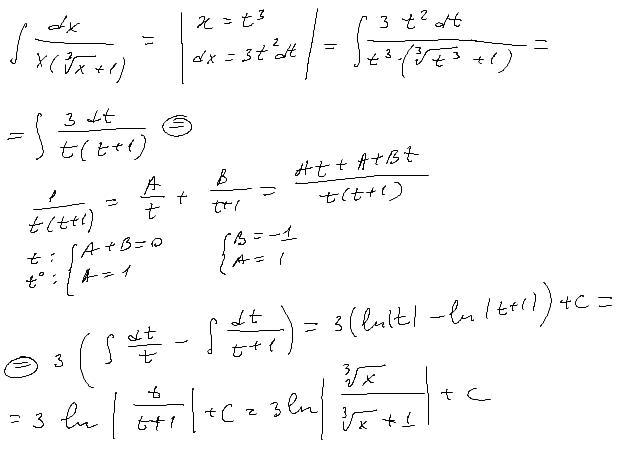 ∫ dx / (x(∛x + 1)) = | x = t³, dx = 3t² dt | = ∫ 3 t² dt / (t³·(∛t³ + 1)) =
= ∫ 3 dt / (t(t+1)) ⊜
1 / (t(t+1)) = A/t + B/(t+1) = (At + A + Bt) / (t(t+1))
t : { A + B = 0 { B = -1
t⁰ : { A = 1 { A = 1
⊜ 3 ( ∫ dt/t - ∫ dt/(t+1) ) = 3 (ln|t| - ln|t+1|) + C =
= 3 ln | t/(t+1) | + C = 3 ln | ∛x / (∛x + 1) | + C